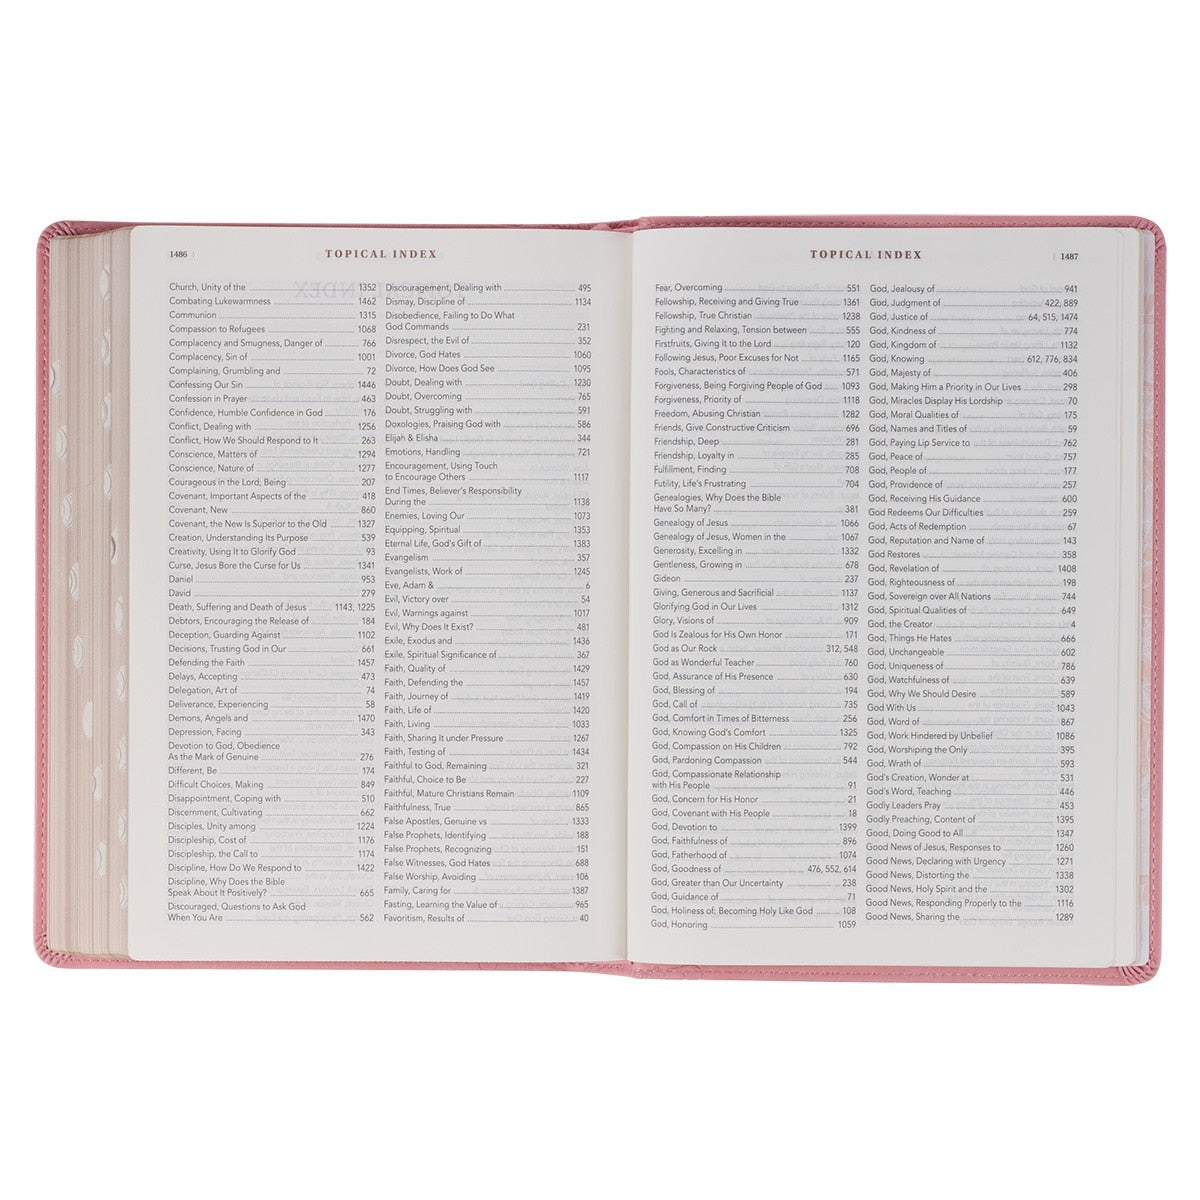 1486 |
TOPICAL INDEX
Church, Unity of the 1352
Combating Lukewarmness 1462
Communion 1315
Compassion to Refugees 1068
Complacency and Smugness, Danger of 766
Complacency, Sin of 1001
Complaining, Grumbling and 72
Confessing Our Sin 1446
Confession in Prayer 463
Confidence, Humble Confidence in God 176
Conflict, Dealing with 1256
Conflict, How We Should Respond to It 263
Conscience, Matters of 1294
Conscience, Nature of 1277
Courageous in the Lord, Being 207
Covenant, Important Aspects of the 418
Covenant, New 860
Covenant, the New Is Superior to the Old 1327
Creation, Understanding Its Purpose 539
Creativity, Using It to Glorify God 93
Curse, Jesus Bore the Curse for Us 1341
Daniel 953
David 279
Death, Suffering and Death of Jesus 1143, 1225
Debtors, Encouraging the Release of 184
Deception, Guarding Against 1102
Decisions, Trusting God in Our 661
Defending the Faith 1457
Delays, Accepting 473
Delegation, Art of 74
Deliverance, Experiencing 58
Demons, Angels and 1470
Depression, Facing 343
Devotion to God, Obedience
As the Mark of Genuine 276
Different, Be 174
Difficult Choices, Making 849
Disappointment, Coping with 510
Discernment, Cultivating 662
Disciples, Unity among 1224
Discipleship, Cost of 1176
Discipleship, the Call to 1174
Discipline, How Do We Respond to 1422
Discipline, Why Does the Bible
Speak About It Positively? 665
Discouraged, Questions to Ask God
When You Are 562
Discouragement, Dealing with 495
Dismay, Discipline of 1134
Disobedience, Failing to Do What
God Commands 231
Disrespect, the Evil of 352
Divorce, God Hates 1060
Divorce, How Does God See 1095
Doubt, Dealing with 1230
Doubt, Overcoming 765
Doubt, Struggling with 591
Doxologies, Praising God with 586
Elijah & Elisha 344
Emotions, Handling 721
Encouragement, Using Touch
to Encourage Others 1117
End Times, Believer's Responsibility
During the 1138
Enemies, Loving Our 1073
Equipping, Spiritual 1353
Eternal Life, God's Gift of 1383
Evangelism 357
Evangelists, Work of 1245
Eve, Adam & 6
Evil, Victory over 54
Evil, Warnings against 1017
Evil, Why Does It Exist? 481
Exile, Exodus and 1436
Exile, Spiritual Significance of 367
Faith, Quality of 1429
Faith, Defending the 1457
Faith, Journey of 1419
Faith, Life of 1420
Faith, Living 1033
Faith, Sharing It under Pressure 1267
Faith, Testing of 1434
Faithful to God, Remaining 321
Faithful, Choice to Be 227
Faithful, Mature Christians Remain 1109
Faithfulness, True 865
False Apostles, Genuine vs 1333
False Prophets, Identifying 188
False Prophets, Recognizing 151
False Witnesses, God Hates 688
False Worship, Avoiding 106
Family, Caring for 1387
Fasting, Learning the Value of 965
Favoritism, Results of 40
TOPICAL INDEX
| 1487
Fear, Overcoming 551
Fellowship, Receiving and Giving True 1361
Fellowship, True Christian 1238
Fighting and Relaxing, Tension between 555
Firstfruits, Giving It to the Lord 120
Following Jesus, Poor Excuses for Not 1165
Fools, Characteristics of 571
Forgiveness, Being Forgiving People of God 1093
Forgiveness, Priority of 1118
Freedom, Abusing Christian 1282
Friends, Give Constructive Criticism 696
Friendship, Deep 281
Friendship, Loyalty in 285
Fulfillment, Finding 708
Futility, Life's Frustrating 704
Genealogies, Why Does the Bible
Have So Many? 381
Genealogy of Jesus 1066
Genealogy of Jesus, Women in the 1067
Generosity, Excelling in 1332
Gentleness, Growing in 678
Gideon 237
Giving, Generous and Sacrificial 1137
Glorifying God in Our Lives 1312
Glory, Visions of 909
God Is Zealous for His Own Honor 171
God as Our Rock 312, 548
God as Wonderful Teacher 760
God, Assurance of His Presence 630
God, Blessing of 194
God, Call of 735
God, Comfort in Times of Bitterness 256
God, Knowing God's Comfort 1325
God, Compassion on His Children 792
God, Pardoning Compassion 544
God, Compassionate Relationship
with His People 91
God, Concern for His Honor 21
God, Covenant with His People 18
God, Devotion to 1399
God, Faithfulness of 896
God, Fatherhood of 1074
God, Goodness of 476, 552, 614
God, Greater than Our Uncertainty 238
God, Guidance of 71
God, Holiness of: Becoming Holy Like God 108
God, Honoring 1059
God, Jealousy of 941
God, Judgment of 422, 889
God, Justice of 64, 515, 1474
God, Kindness of 774
God, Kingdom of 1132
God, Knowing 612, 776, 834
God, Majesty of 406
God, Making Him a Priority in Our Lives 298
God, Miracles Display His Lordship 70
God, Moral Qualities of 175
God, Names and Titles of 59
God, Paying Lip Service to 762
God, Peace of 757
God, People of 177
God, Providence of 257
God, Receiving His Guidance 600
God Redeems Our Difficulties 259
God, Acts of Redemption 67
God, Reputation and Name of 143
God Restores 358
God, Revelation of 1408
God, Righteousness of 198
God, Sovereign over All Nations 744
God, Spiritual Qualities of 649
God, the Creator 4
God, Things He Hates 666
God, Unchangeable 602
God, Uniqueness of 786
God, Watchfulness of 639
God, Why We Should Desire 589
God With Us 1043
God, Word of 867
God, Work Hindered by Unbelief 1086
God, Worshiping the Only 395
God, Wrath of 593
God's Creation, Wonder at 531
God's Word, Teaching 446
Godly Leaders Pray 453
Godly Preaching, Content of 1395
Good, Doing Good to All 1347
Good News of Jesus, Responses to 1260
Good News, Declaring with Urgency 1271
Good News, Distorting the 1338
Good News, Holy Spirit and the 1302
Good News, Responding Properly to the 1116
Good News, Sharing the 1289